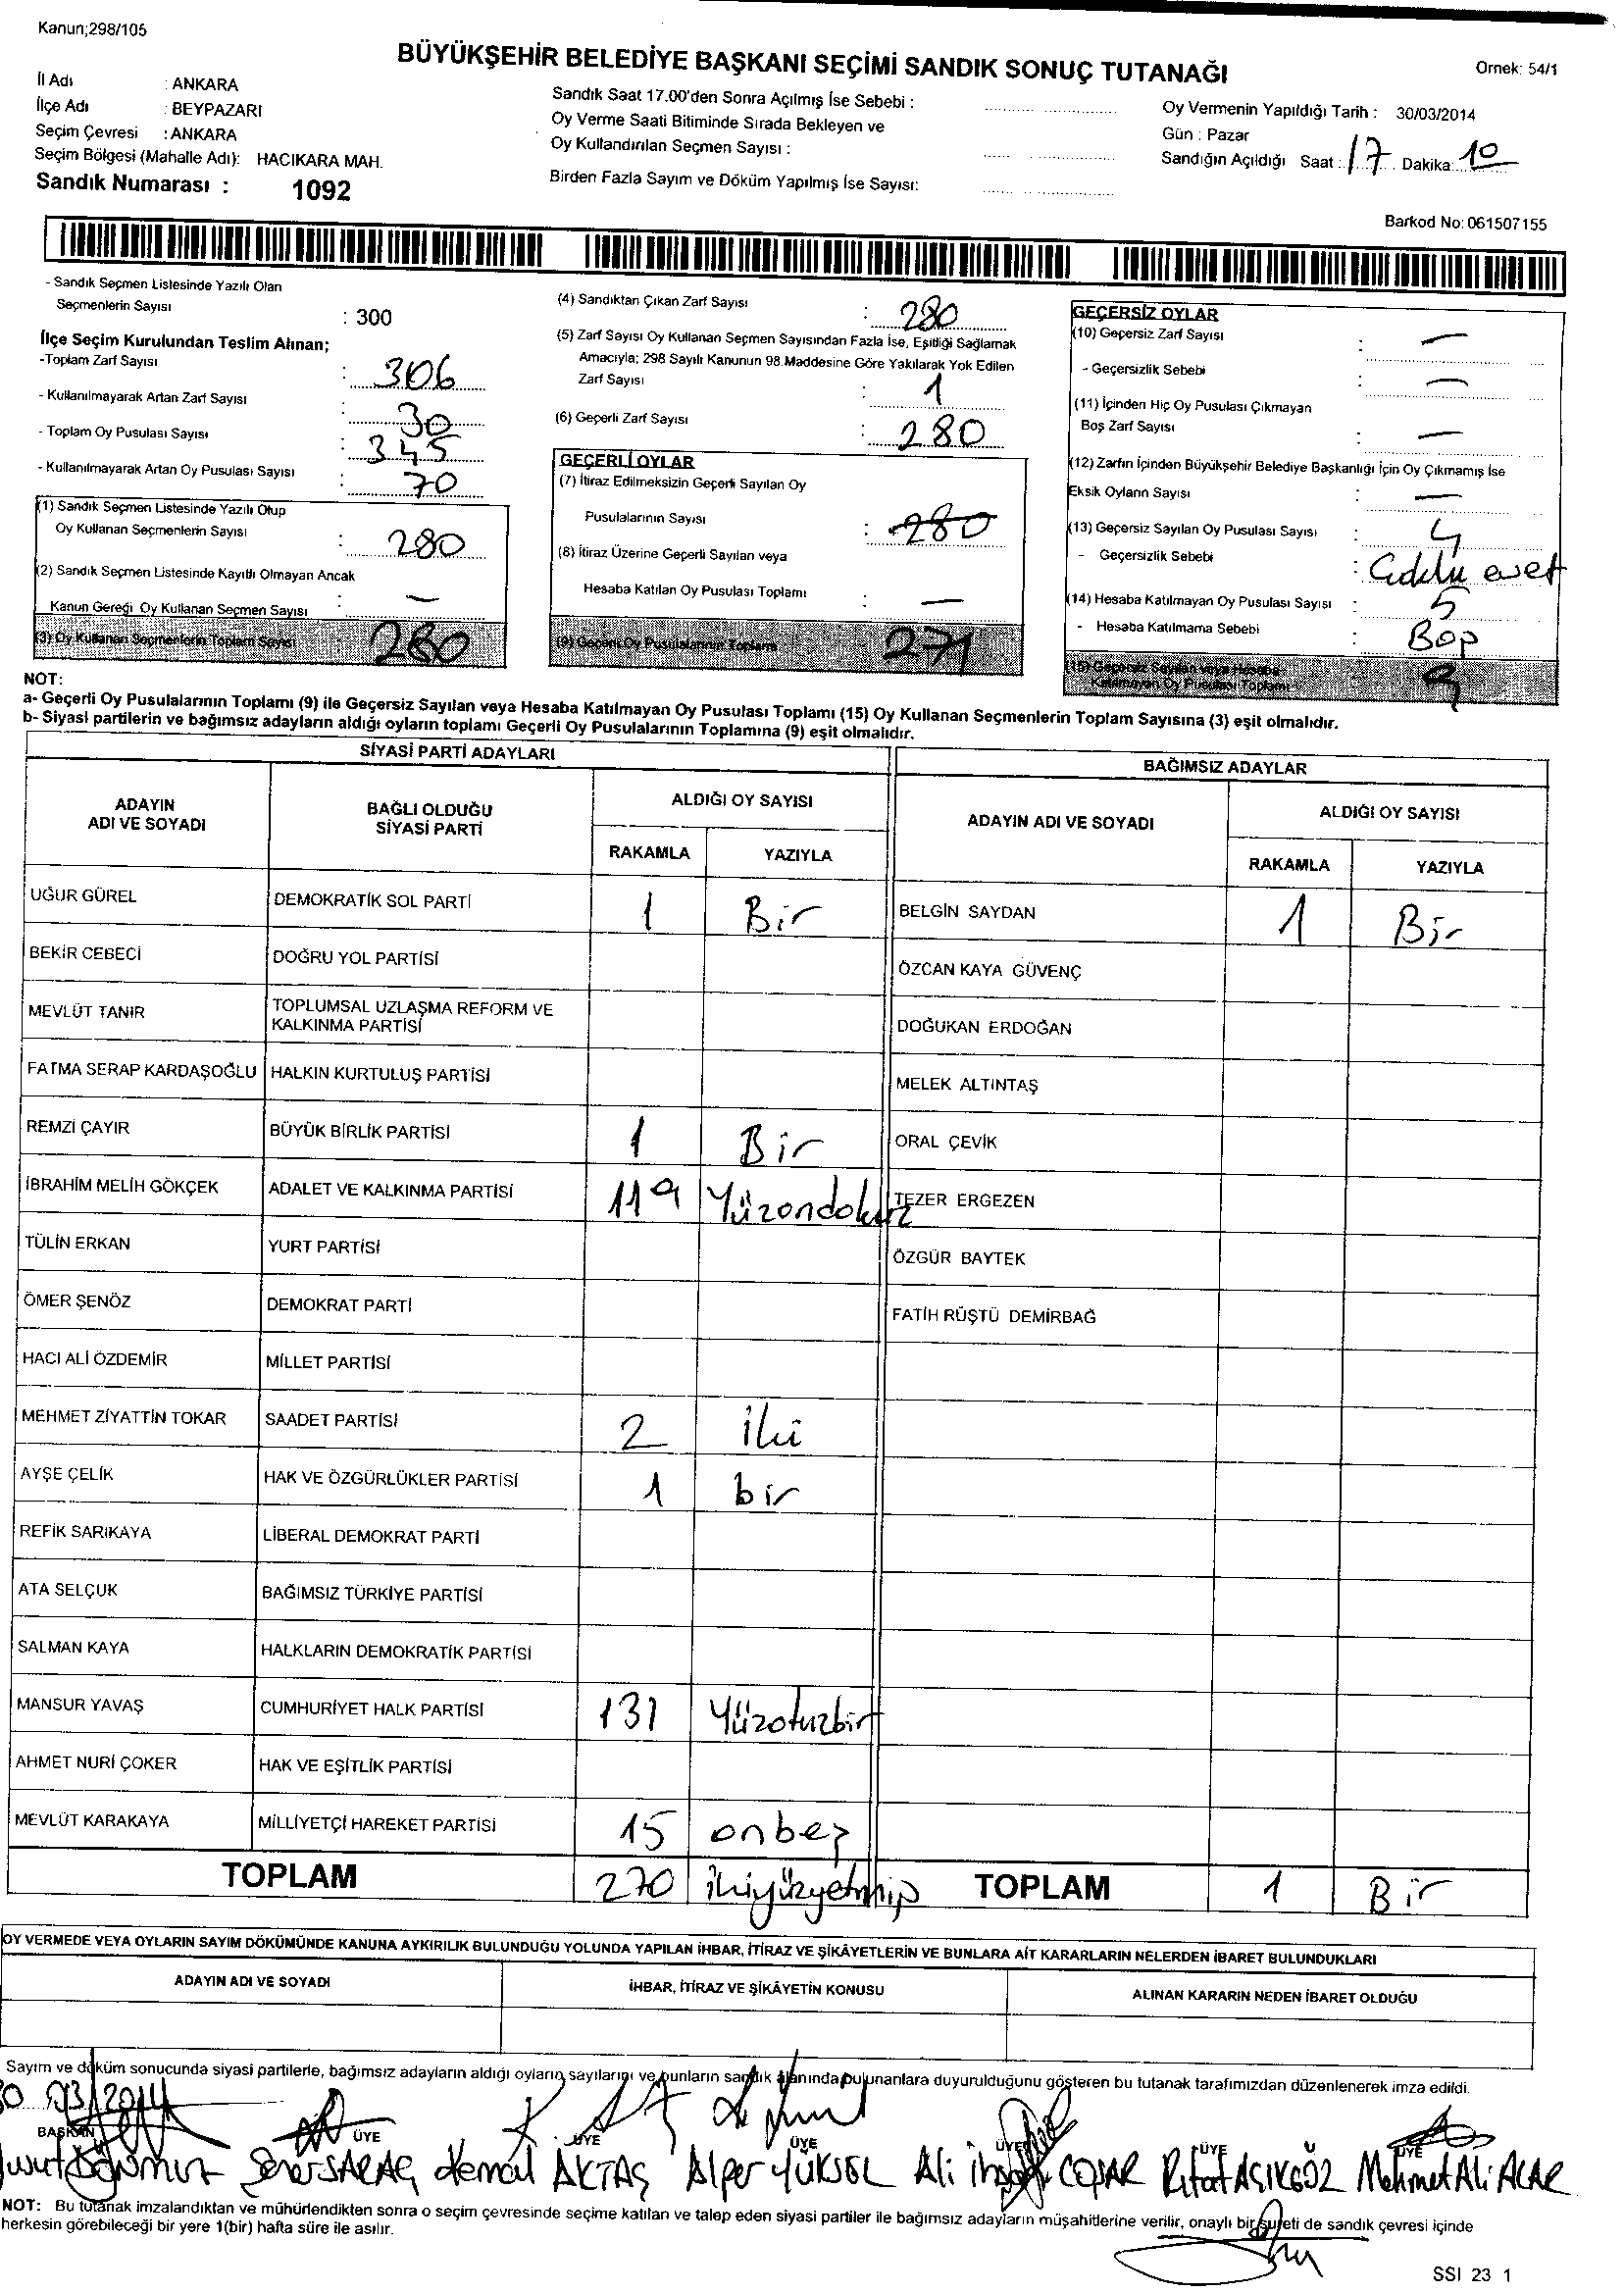 Kanun;298/105
BÜYÜKŞEHİR BELEDİYE BAŞKANI SEÇİMİ SANDIK SONUÇ TUTANAĞI
Ornek: 54/1
İl Adı : ANKARA
İlçe Adı : BEYPAZARI
Seçim Çevresi : ANKARA
Seçim Bölgesi (Mahalle Adı): HACIKARA MAH.
Sandık Numarası : 1092
Sandık Saat 17.00'den Sonra Açılmış İse Sebebi :
Oy Verme Saati Bitiminde Sırada Bekleyen ve
Oy Kullandırılan Seçmen Sayısı :
Birden Fazla Sayım ve Döküm Yapılmış İse Sayısı:
Oy Vermenin Yapıldığı Tarih : 30/03/2014
Gün : Pazar
Sandığın Açıldığı Saat : 17 Dakika: 10
Barkod No: 061507155
- Sandık Seçmen Listesinde Yazılı Olan
Seçmenlerin Sayısı : 300
İlçe Seçim Kurulundan Teslim Alınan;
-Toplam Zarf Sayısı : 306
- Kullanılmayarak Artan Zarf Sayısı : 30
- Toplam Oy Pusulası Sayısı : 345
- Kullanılmayarak Artan Oy Pusulası Sayısı : 70
(1) Sandık Seçmen Listesinde Yazılı Olup
Oy Kullanan Seçmenlerin Sayısı : 280
(2) Sandık Seçmen Listesinde Kayıtlı Olmayan Ancak
Kanun Gereği Oy Kullanan Seçmen Sayısı : —
(3) Oy Kullanan Seçmenlerin Toplam Sayısı : 280
(4) Sandıktan Çıkan Zarf Sayısı : 280
(5) Zarf Sayısı Oy Kullanan Seçmen Sayısından Fazla İse, Eşitliği Sağlamak
Amacıyla; 298 Sayılı Kanunun 98.Maddesine Göre Yakılarak Yok Edilen
Zarf Sayısı : 1
(6) Geçerli Zarf Sayısı : 280
GEÇERLİ OYLAR
(7) İtiraz Edilmeksizin Geçerli Sayılan Oy
Pusulalarının Sayısı : 280
(8) İtiraz Üzerine Geçerli Sayılan veya
Hesaba Katılan Oy Pusulası Toplamı : —
(9) Geçerli Oy Pusulalarının Toplamı 271
GEÇERSİZ OYLAR
(10) Geçersiz Zarf Sayısı : —
- Geçersizlik Sebebi : —
(11) İçinden Hiç Oy Pusulası Çıkmayan
Boş Zarf Sayısı : —
(12) Zarfın İçinden Büyükşehir Belediye Başkanlığı İçin Oy Çıkmamış İse
Eksik Oyların Sayısı : —
(13) Geçersiz Sayılan Oy Pusulası Sayısı : 4
- Geçersizlik Sebebi : evet
(14) Hesaba Katılmayan Oy Pusulası Sayısı : 5
- Hesaba Katılmama Sebebi : Boş
(15) Geçersiz Sayılan veya Hesaba
Katılmayan Oy Pusulası Toplamı 9
NOT:
a- Geçerli Oy Pusulalarının Toplamı (9) ile Geçersiz Sayılan veya Hesaba Katılmayan Oy Pusulası Toplamı (15) Oy Kullanan Seçmenlerin Toplam Sayısına (3) eşit olmalıdır.
b- Siyasi partilerin ve bağımsız adayların aldığı oyların toplamı Geçerli Oy Pusulalarının Toplamına (9) eşit olmalıdır.
SİYASİ PARTİ ADAYLARI
ADAYIN ADI VE SOYADI
BAĞLI OLDUĞU SİYASİ PARTİ
ALDIĞI OY SAYISI
RAKAMLA YAZIYLA
UĞUR GÜREL DEMOKRATİK SOL PARTİ 1 Bir
BEKİR CEBECİ DOĞRU YOL PARTİSİ
MEVLÜT TANIR TOPLUMSAL UZLAŞMA REFORM VE KALKINMA PARTİSİ
FATMA SERAP KARDAŞOĞLU HALKIN KURTULUŞ PARTİSİ
REMZİ ÇAYIR BÜYÜK BİRLİK PARTİSİ 1 Bir
İBRAHİM MELİH GÖKÇEK ADALET VE KALKINMA PARTİSİ 119 Yüzondokuz
TÜLİN ERKAN YURT PARTİSİ
ÖMER ŞENÖZ DEMOKRAT PARTİ
HACI ALİ ÖZDEMİR MİLLET PARTİSİ
MEHMET ZİYATTİN TOKAR SAADET PARTİSİ 2 iki
AYŞE ÇELİK HAK VE ÖZGÜRLÜKLER PARTİSİ 1 bir
REFİK SARIKAYA LİBERAL DEMOKRAT PARTİ
ATA SELÇUK BAĞIMSIZ TÜRKİYE PARTİSİ
SALMAN KAYA HALKLARIN DEMOKRATİK PARTİSİ
MANSUR YAVAŞ CUMHURİYET HALK PARTİSİ 131 Yüzotuzbir
AHMET NURİ ÇOKER HAK VE EŞİTLİK PARTİSİ
MEVLÜT KARAKAYA MİLLİYETÇİ HAREKET PARTİSİ 15 onbeş
TOPLAM 270 ikiyüzyetmiş
BAĞIMSIZ ADAYLAR
ADAYIN ADI VE SOYADI
ALDIĞI OY SAYISI
RAKAMLA YAZIYLA
BELGİN SAYDAN 1 Bir
ÖZCAN KAYA GÜVENÇ
DOĞUKAN ERDOĞAN
MELEK ALTINTAŞ
ORAL ÇEVİK
TEZER ERGEZEN
ÖZGÜR BAYTEK
FATİH RÜŞTÜ DEMİRBAĞ
TOPLAM 1 Bir
OY VERMEDE VEYA OYLARIN SAYIM DÖKÜMÜNDE KANUNA AYKIRILIK BULUNDUĞU YOLUNDA YAPILAN İHBAR, İTİRAZ VE ŞİKÂYETLERİN VE BUNLARA AİT KARARLARIN NELERDEN İBARET BULUNDUKLARI
ADAYIN ADI VE SOYADI İHBAR, İTİRAZ VE ŞİKÂYETİN KONUSU ALINAN KARARIN NEDEN İBARET OLDUĞU
Sayım ve döküm sonucunda siyasi partilerle, bağımsız adayların aldığı oyların sayılarını ve bunların sandık alanında bulunanlara duyurulduğunu gösteren bu tutanak tarafımızdan düzenlenerek imza edildi.
30/03/2014
BAŞKAN ÜYE ÜYE ÜYE ÜYE ÜYE ÜYE
Şener SARAÇ Kemal AKTAŞ Alper YÜKSEL Ali ihsan COŞAR Rıfat AÇIKGÖZ Mehmet Ali ACAR
NOT: Bu tutanak imzalandıktan ve mühürlendikten sonra o seçim çevresinde seçime katılan ve talep eden siyasi partiler ile bağımsız adayların müşahitlerine verilir, onaylı bir sureti de sandık çevresi içinde
herkesin görebileceği bir yere 1(bir) hafta süre ile asılır.
SSI 23 1